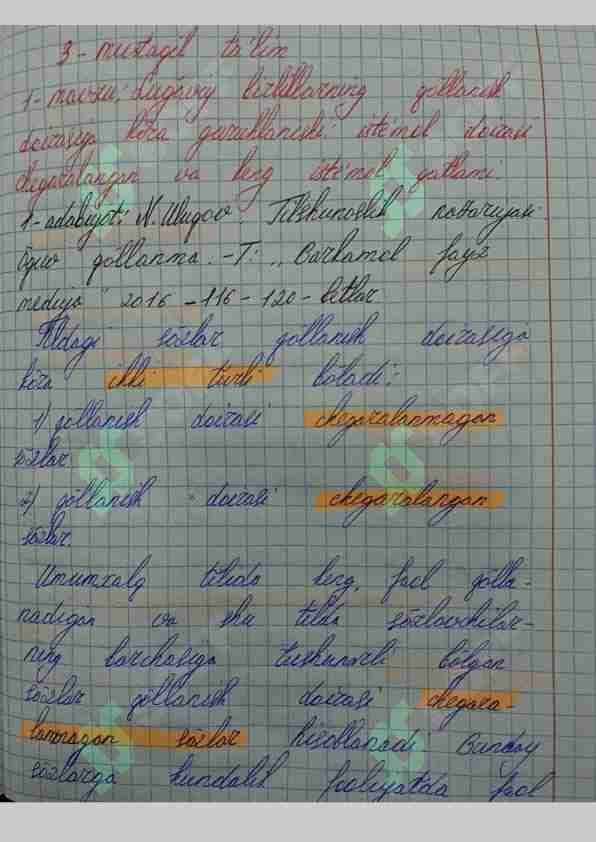 3 - mustaqil ta'lim
1-mavzu: Lug'aviy birliklarning qo'llanish
doirasiga ko'ra guruhlanishi: iste'mol doirasi
chegaralangan va keng iste'mol qatlami.
1-adabiyot: N. Uluqov. Tilshunoslik nazariyasi
O'quv qo'llanma. -T: ,,Barkamol fayz
mediya" 2016 - 116 - 120 - betlar.
Tildagi so'zlar qo'llanish doirasiga
ko'ra ikki turli bo'ladi:
1) qo'llanish doirasi chegaralanmagan
so'zlar
2) qo'llanish doirasi chegaralangan
so'zlar.
Umumxalq tilida keng, faol qo'lla-
nadigan va shu tilda so'zlovchilar-
ning barchasiga tushunarli bo'lgan
so'zlar qo'llanish doirasi chegara-
lanmagan so'zlar hisoblanadi. Bunday
so'zlarga kundalik faoliyatda faol